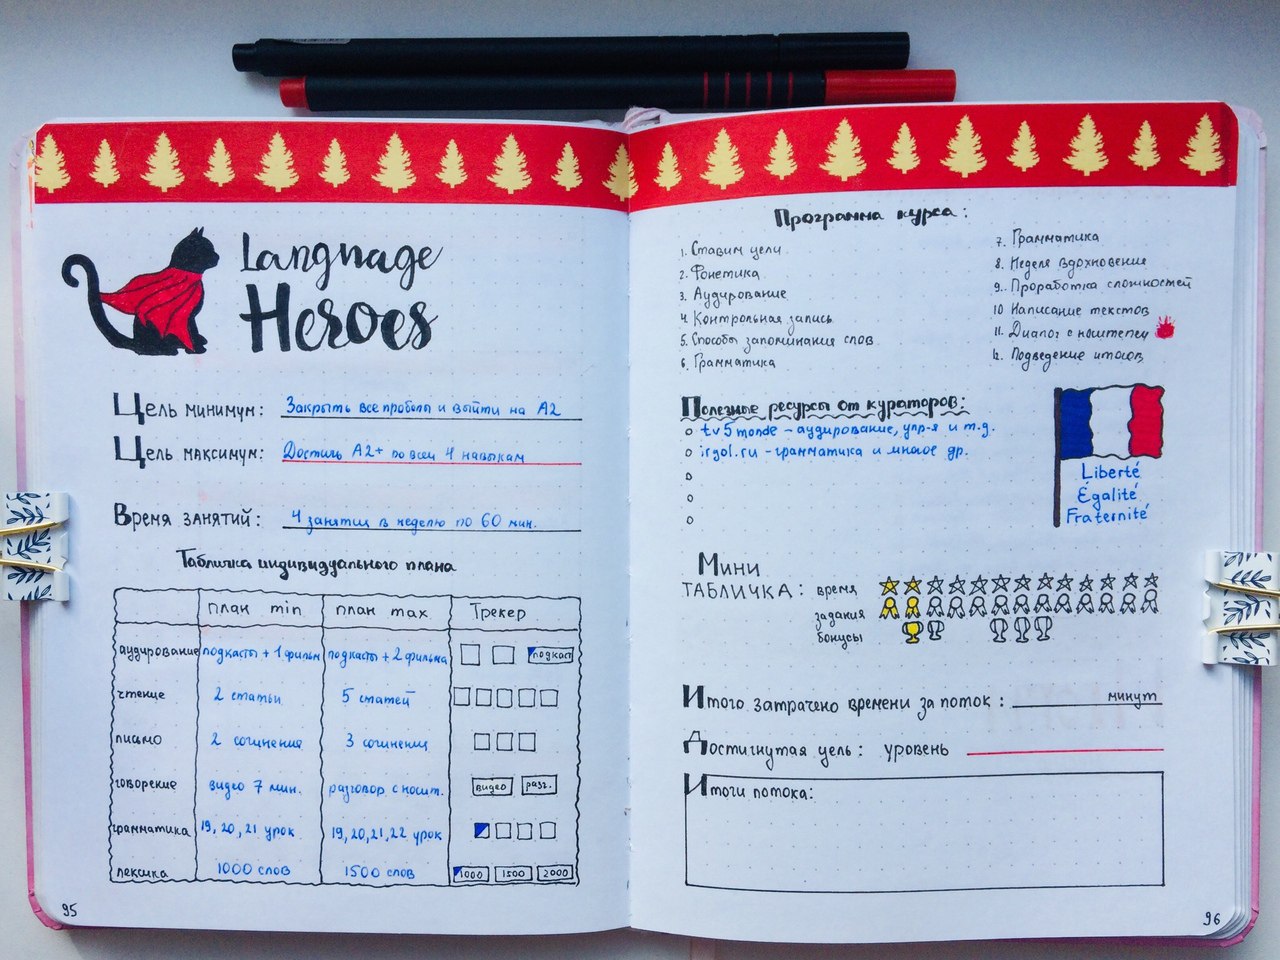 Language
Heroes
Цель минимум: Закрыть все пробелы и выйти на А2
Цель максимум: Достичь А2+ по всем 4 навыкам
Время занятий: 4 занятия в неделю по 60 мин.
Табличка индивидуального плана
план min план max Трекер
аудирование подкасты + 1 фильм подкасты + 2 фильма подкаст
чтение 2 статьи 5 статей
письмо 2 сочинение 3 сочинения
говорение видео 7 мин. разговор с ношт. видео разг.
грамматика 19, 20, 21 урок 19, 20, 21, 22 урок
лексика 1000 слов 1500 слов 1000 1500 2000
95
Программа курса:
1. Ставим цели
2. Фонетика
3. Аудирование
4 Контрольная запись
5. Способы запоминания слов
6. Грамматика
7. Грамматика
8. Неделя вдохновения
9. Проработка сложностей
10 Написание текстов
11. Диалог с ноштепом
12. Подведение итогов
Полезные ресурсы от кураторов:
tv5monde - аудирование, упр-я и т.д.
irgol.ru - грамматика и многое др.
Liberté
Égalité
Fraternité
Мини
ТАБЛИЧКА: время
задания
бонусы
Итого затрачено времени за поток: минут
Достигнутая цель: уровень
Итоги потока:
96